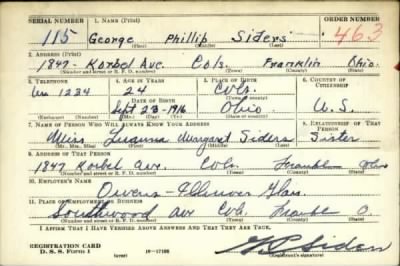 SERIAL NUMBER 1. NAME (Print) ORDER NUMBER
115 George Phillip Siders 463
(First) (Middle) (Last)
2. ADDRESS (Print)
1847 - Korbel Ave. Cols. Franklin Ohio.
(Number and street or R. F. D. number) (Town) (County) (State)
3. TELEPHONE 4. AGE IN YEARS 5. PLACE OF BIRTH 6. COUNTRY OF CITIZENSHIP
1234 24 Cols.
DATE OF BIRTH (Town or county)
Sept 23 - 1916 Ohio U. S.
(Exchange) (Number) (Mo.) (Day) (Yr.) (State or country)
7. NAME OF PERSON WHO WILL ALWAYS KNOW YOUR ADDRESS 8. RELATIONSHIP OF THAT PERSON
Miss Margaret Siders Sister
(Mr., Mrs., Miss) (First) (Middle) (Last)
9. ADDRESS OF THAT PERSON
1847 Korbel Av. Cols Franklin Ohio
(Number and street or R. F. D. number) (Town) (County) (State)
10. EMPLOYER'S NAME
Owens - Illinois Glass.
11. PLACE OF EMPLOYMENT OR BUSINESS
Southwood Av Cols. Frankl O.
(Number and street or R. F. D. number) (Town) (County) (State)
I AFFIRM THAT I HAVE VERIFIED ABOVE ANSWERS AND THAT THEY ARE TRUE.
REGISTRATION CARD
D. S. S. FORM 1 (over) 16—17105 Siders
(Registrant's signature)